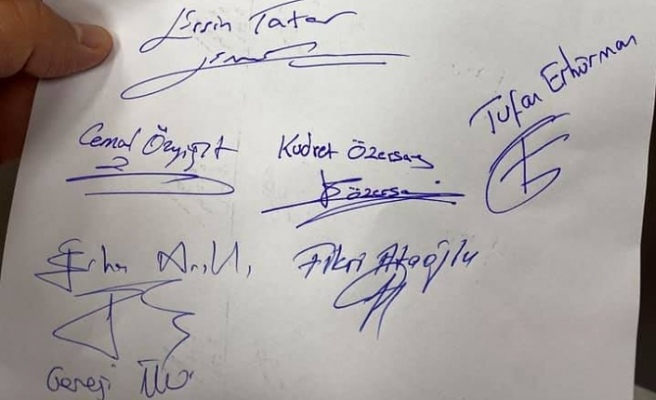 Ersin Tatar
Tufan Erhürman
Cemal Özyiğit
Kudret Özersay
K Özersay
Erhan Arıklı
Fikri Ataoğlu
Gereği